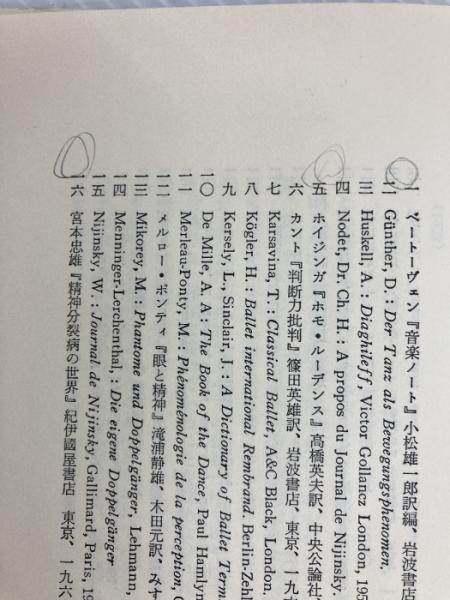 一 ベートーヴェン『音楽ノート』小松雄一郎訳編、岩波書店
二 Günther, D. : Der Tanz als Bewegungsphenomen.
三 Huskell, A. : Diaghileff, Victor Gollancz London, 195
四 Nodet, Dr. Ch. H. : A propos du Journal de Nijinsky.
五 ホイジンガ『ホモ・ルーデンス』高橋英夫訳、中央公論社、
六 カント『判断力批判』篠田英雄訳、岩波書店、東京、一九六
七 Karsavina, T. : Classical Ballet, A&C Black, London,
八 Kögler, H. : Ballet international Rembrand. Berlin-Zehl
九 Kersely, L., Sinclair, J. : A Dictionary of Ballet Term
一〇 De Mille, A. A : The Book of the Dance, Paul Hamlyn
一一 Merleau-Ponty, M. : Phénoménologie de la perception,
一二 メルロー・ポンティ『眼と精神』滝浦静雄、木田元訳、みす
一三 Mikorey, M. : Phantome und Doppelgänger, Lehmann,
一四 Menninger-Lerchenthal, : Die eigene Doppelgänger
一五 Nijinsky, W. : Journal de Nijinsky, Gallimard, Paris, 19
一六 宮本忠雄『精神分裂病の世界』紀伊國屋書店 東京、一九六